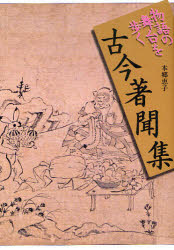 物語の舞台を歩く
古今著聞集
本郷恵子